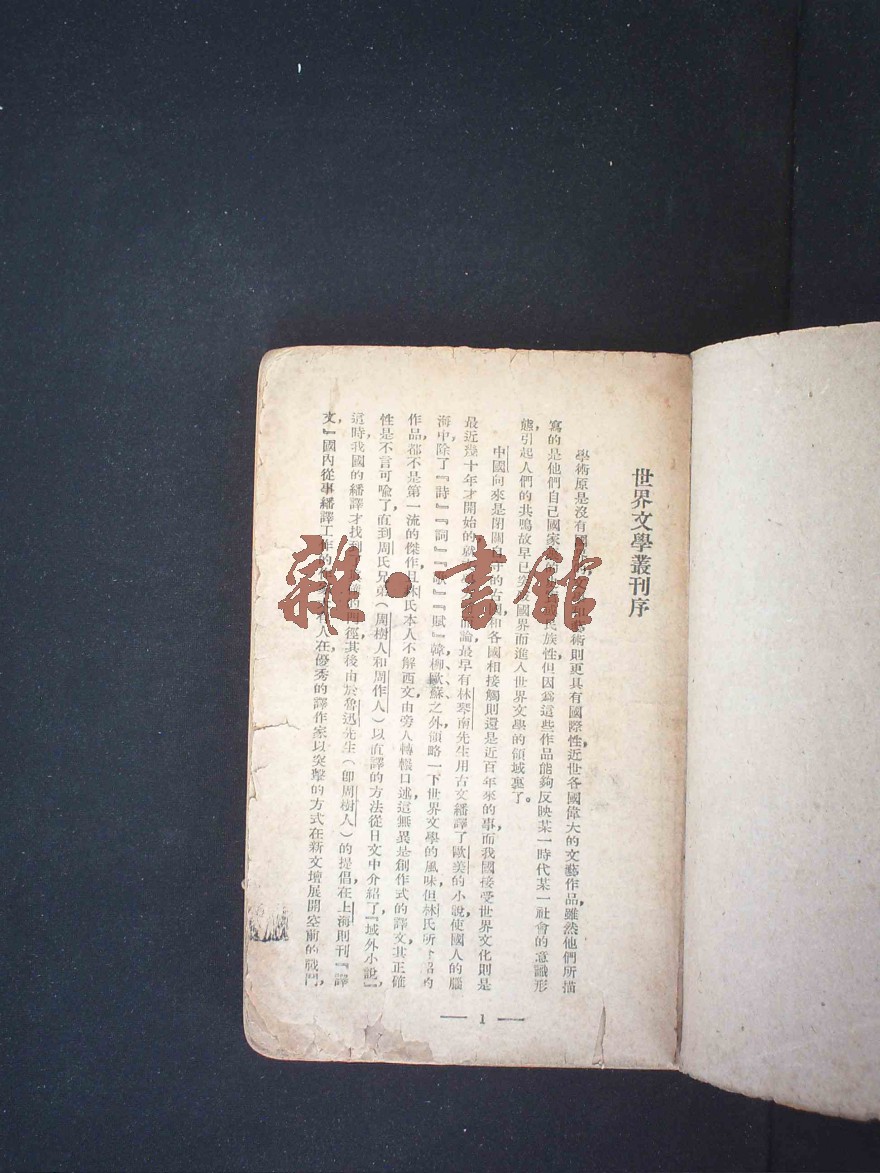 世界文學叢刊序
學術原是沒有國術則更具有國際性,近世各國偉大的文藝作品,雖然他們所描
寫的是他們自己國家民族性,但因爲這些作品能夠反映某一時代某一社會的意識形
態,引起人們的共鳴,故早已突國界而進入世界文學的領域裏了。
中國向來是閉關自守的古國,和各國相接觸則還是近百年來的事,而我國接受世界文化則是
最近幾十年才開始的,就而論,最早有林琴南先生用古文繙譯了歐美的小說,使國人的腦
海中除了『詩』『詞』『』『賦』韓、柳、歐、蘇之外,領略一下世界文學的風味,但林氏所介紹的
作品,都不是第一流的傑作,且林氏本人不解西文,由旁人轉輾口述,這無異是創作式的譯文,其正確
性是不言可喻了,直到周氏兄弟(周樹人和周作人)以直譯的方法從日文中介紹了『域外小說』
這時我國的繙譯才找到徑,其後由於魯迅先生(卽周樹人)的提倡,在上海則刊『譯
文』國內從事繙譯工作的人在,優秀的譯作家以突擊的方式在新文壇展開空前的戰鬥,
— 1 —
雜·書館